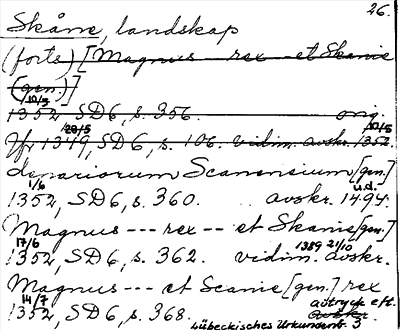 26.
Skåne, landskap
(forts) [Magnus rex et Skanie
(gen.)]
10/5
1352, SD6, s. 356. orig.
28/5 10/5
Jfr 1349, SD6, s. 106. vidim. avskr. 1352.
denariorum Scanensium [gen.]
1/6 u.d.
1352, SD6, s. 360. avskr. 1494.
Magnus --- rex -- et Skanie [gen.]
17/6 1389 21/10
1352, SD6, s. 362. vidim. avskr.
Magnus --- et Scanie [gen.] rex
14/7 avtryck eft.
1352, SD6, s. 368. avskr.
Lübeckisches Urkundenb. 3